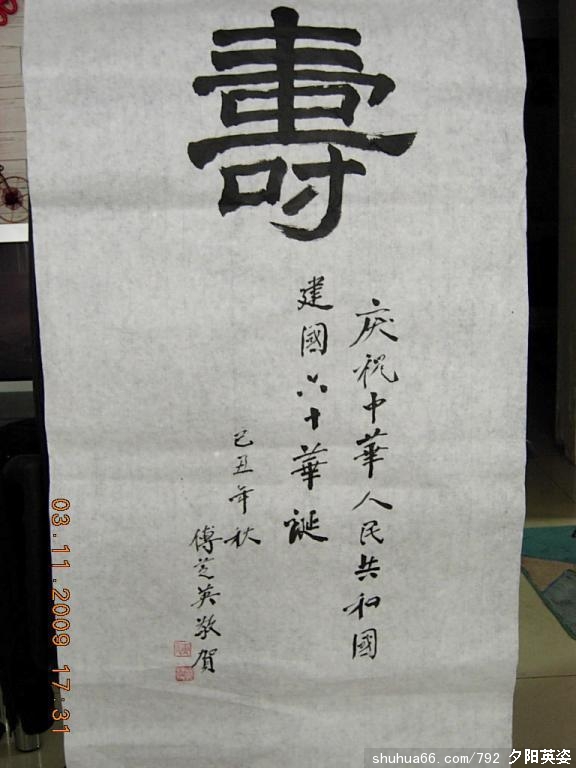 壽
庆祝中華人民共和國
建國六十華誕
己丑年秋
傅芝英敬賀
03.11.2009 17:31
shuhua66.com/792 夕阳英姿